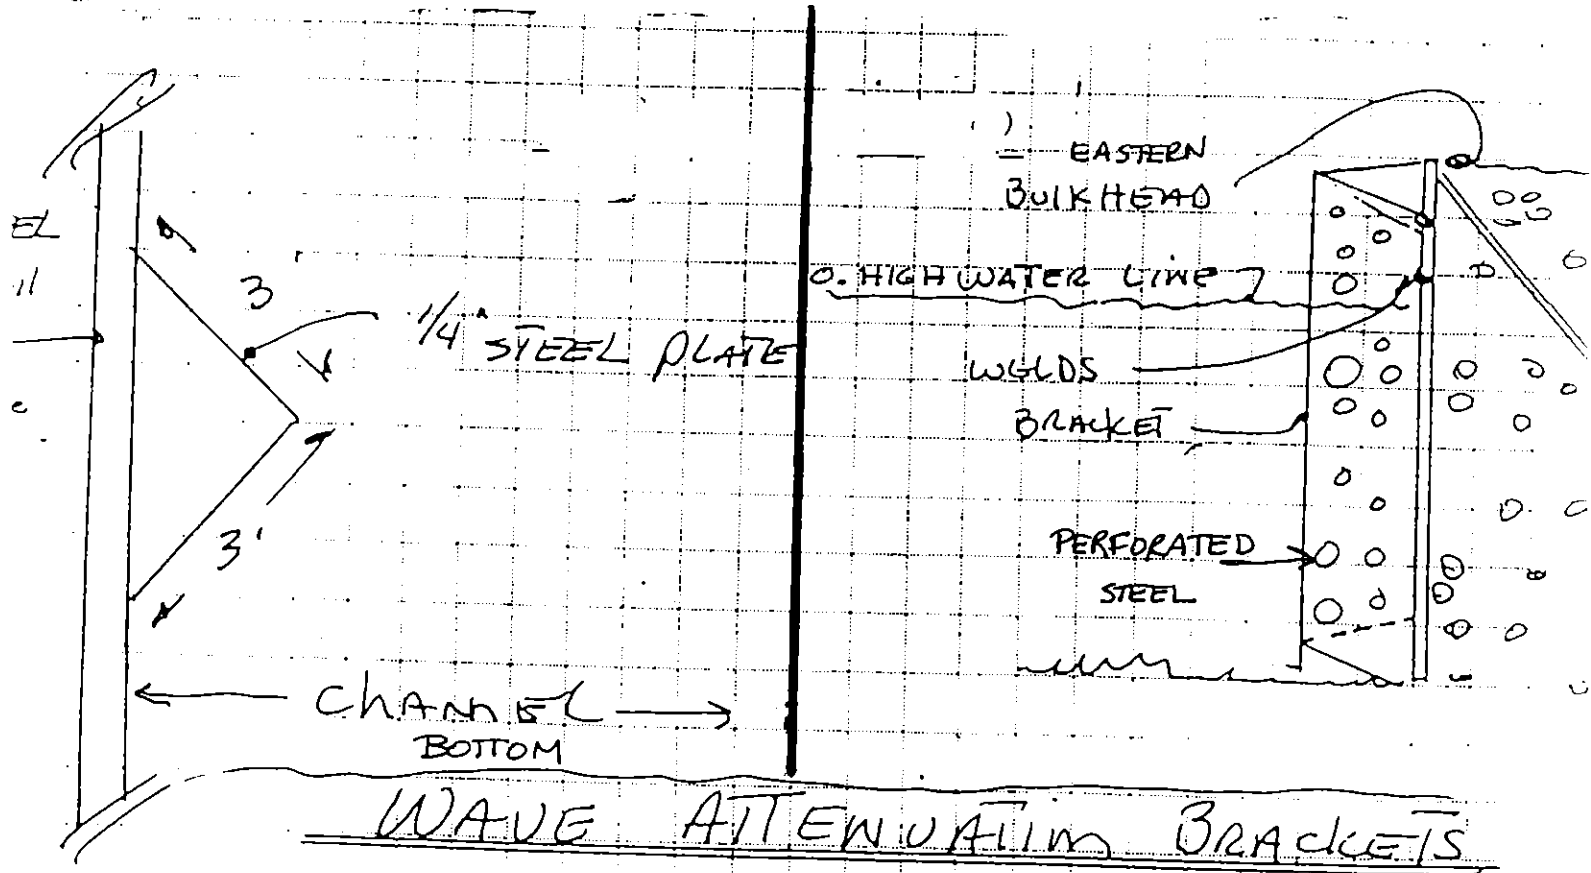 EL
3'
1/4" STEEL PLATE
3'
CHANNEL
BOTTOM
EASTERN
BULKHEAD
O. HIGH WATER LINE
WELDS
BRACKET
PERFORATED
STEEL
WAVE ATTENUATING BRACKETS